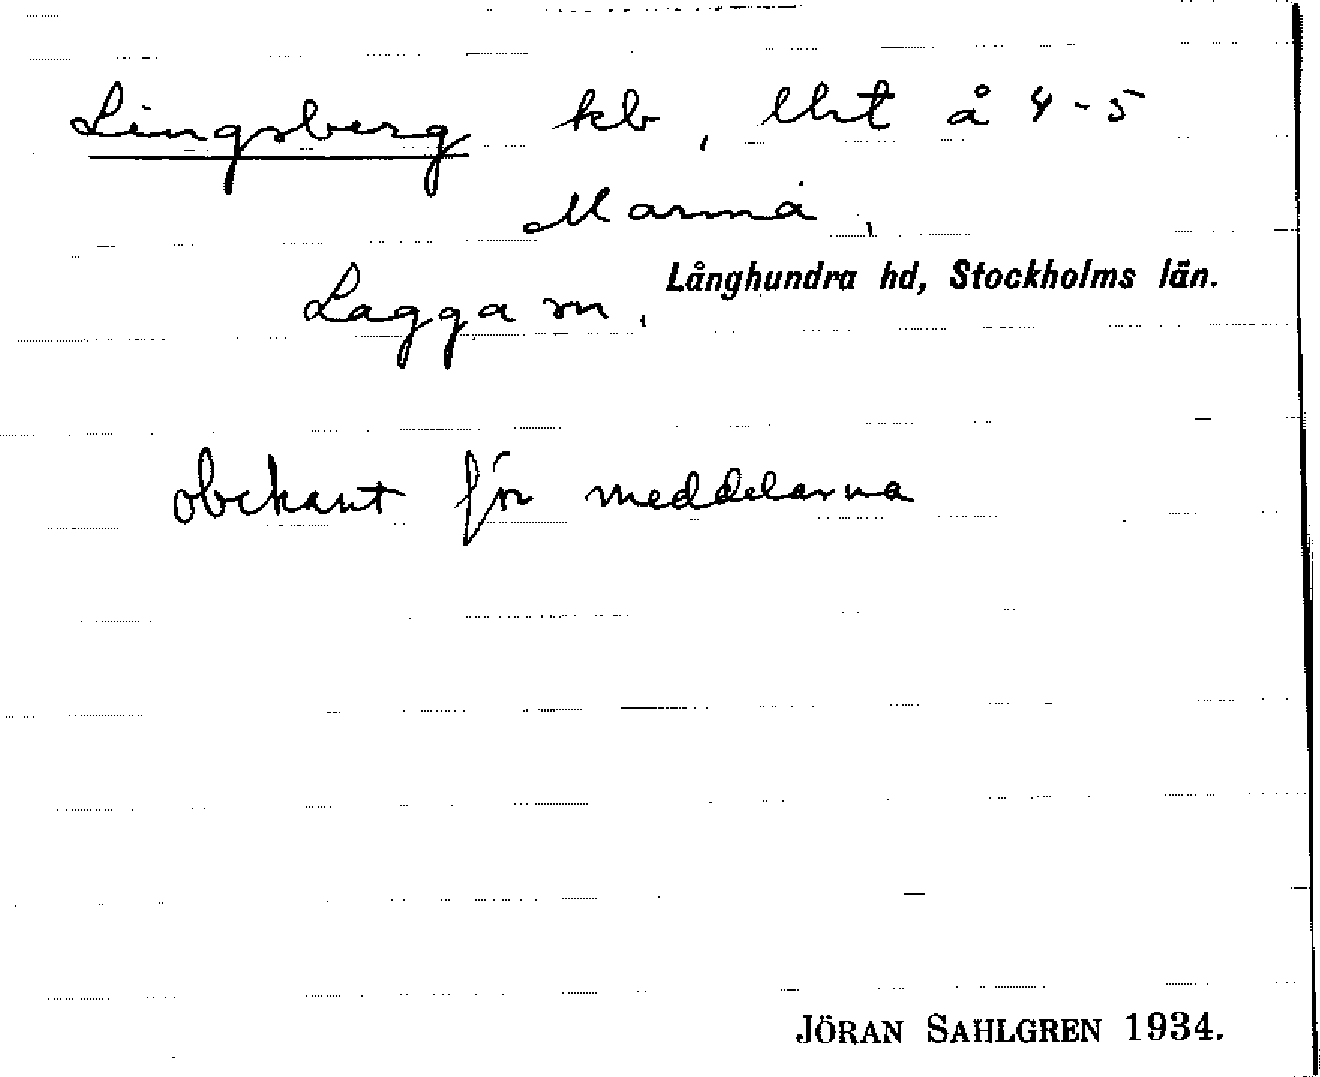 Lingsberg kb, Uht å 4-5
Marma,
Långhundra hd, Stockholms län.
Lagga sn,
obekant för meddelarna
JÖRAN SAHLGREN 1934.